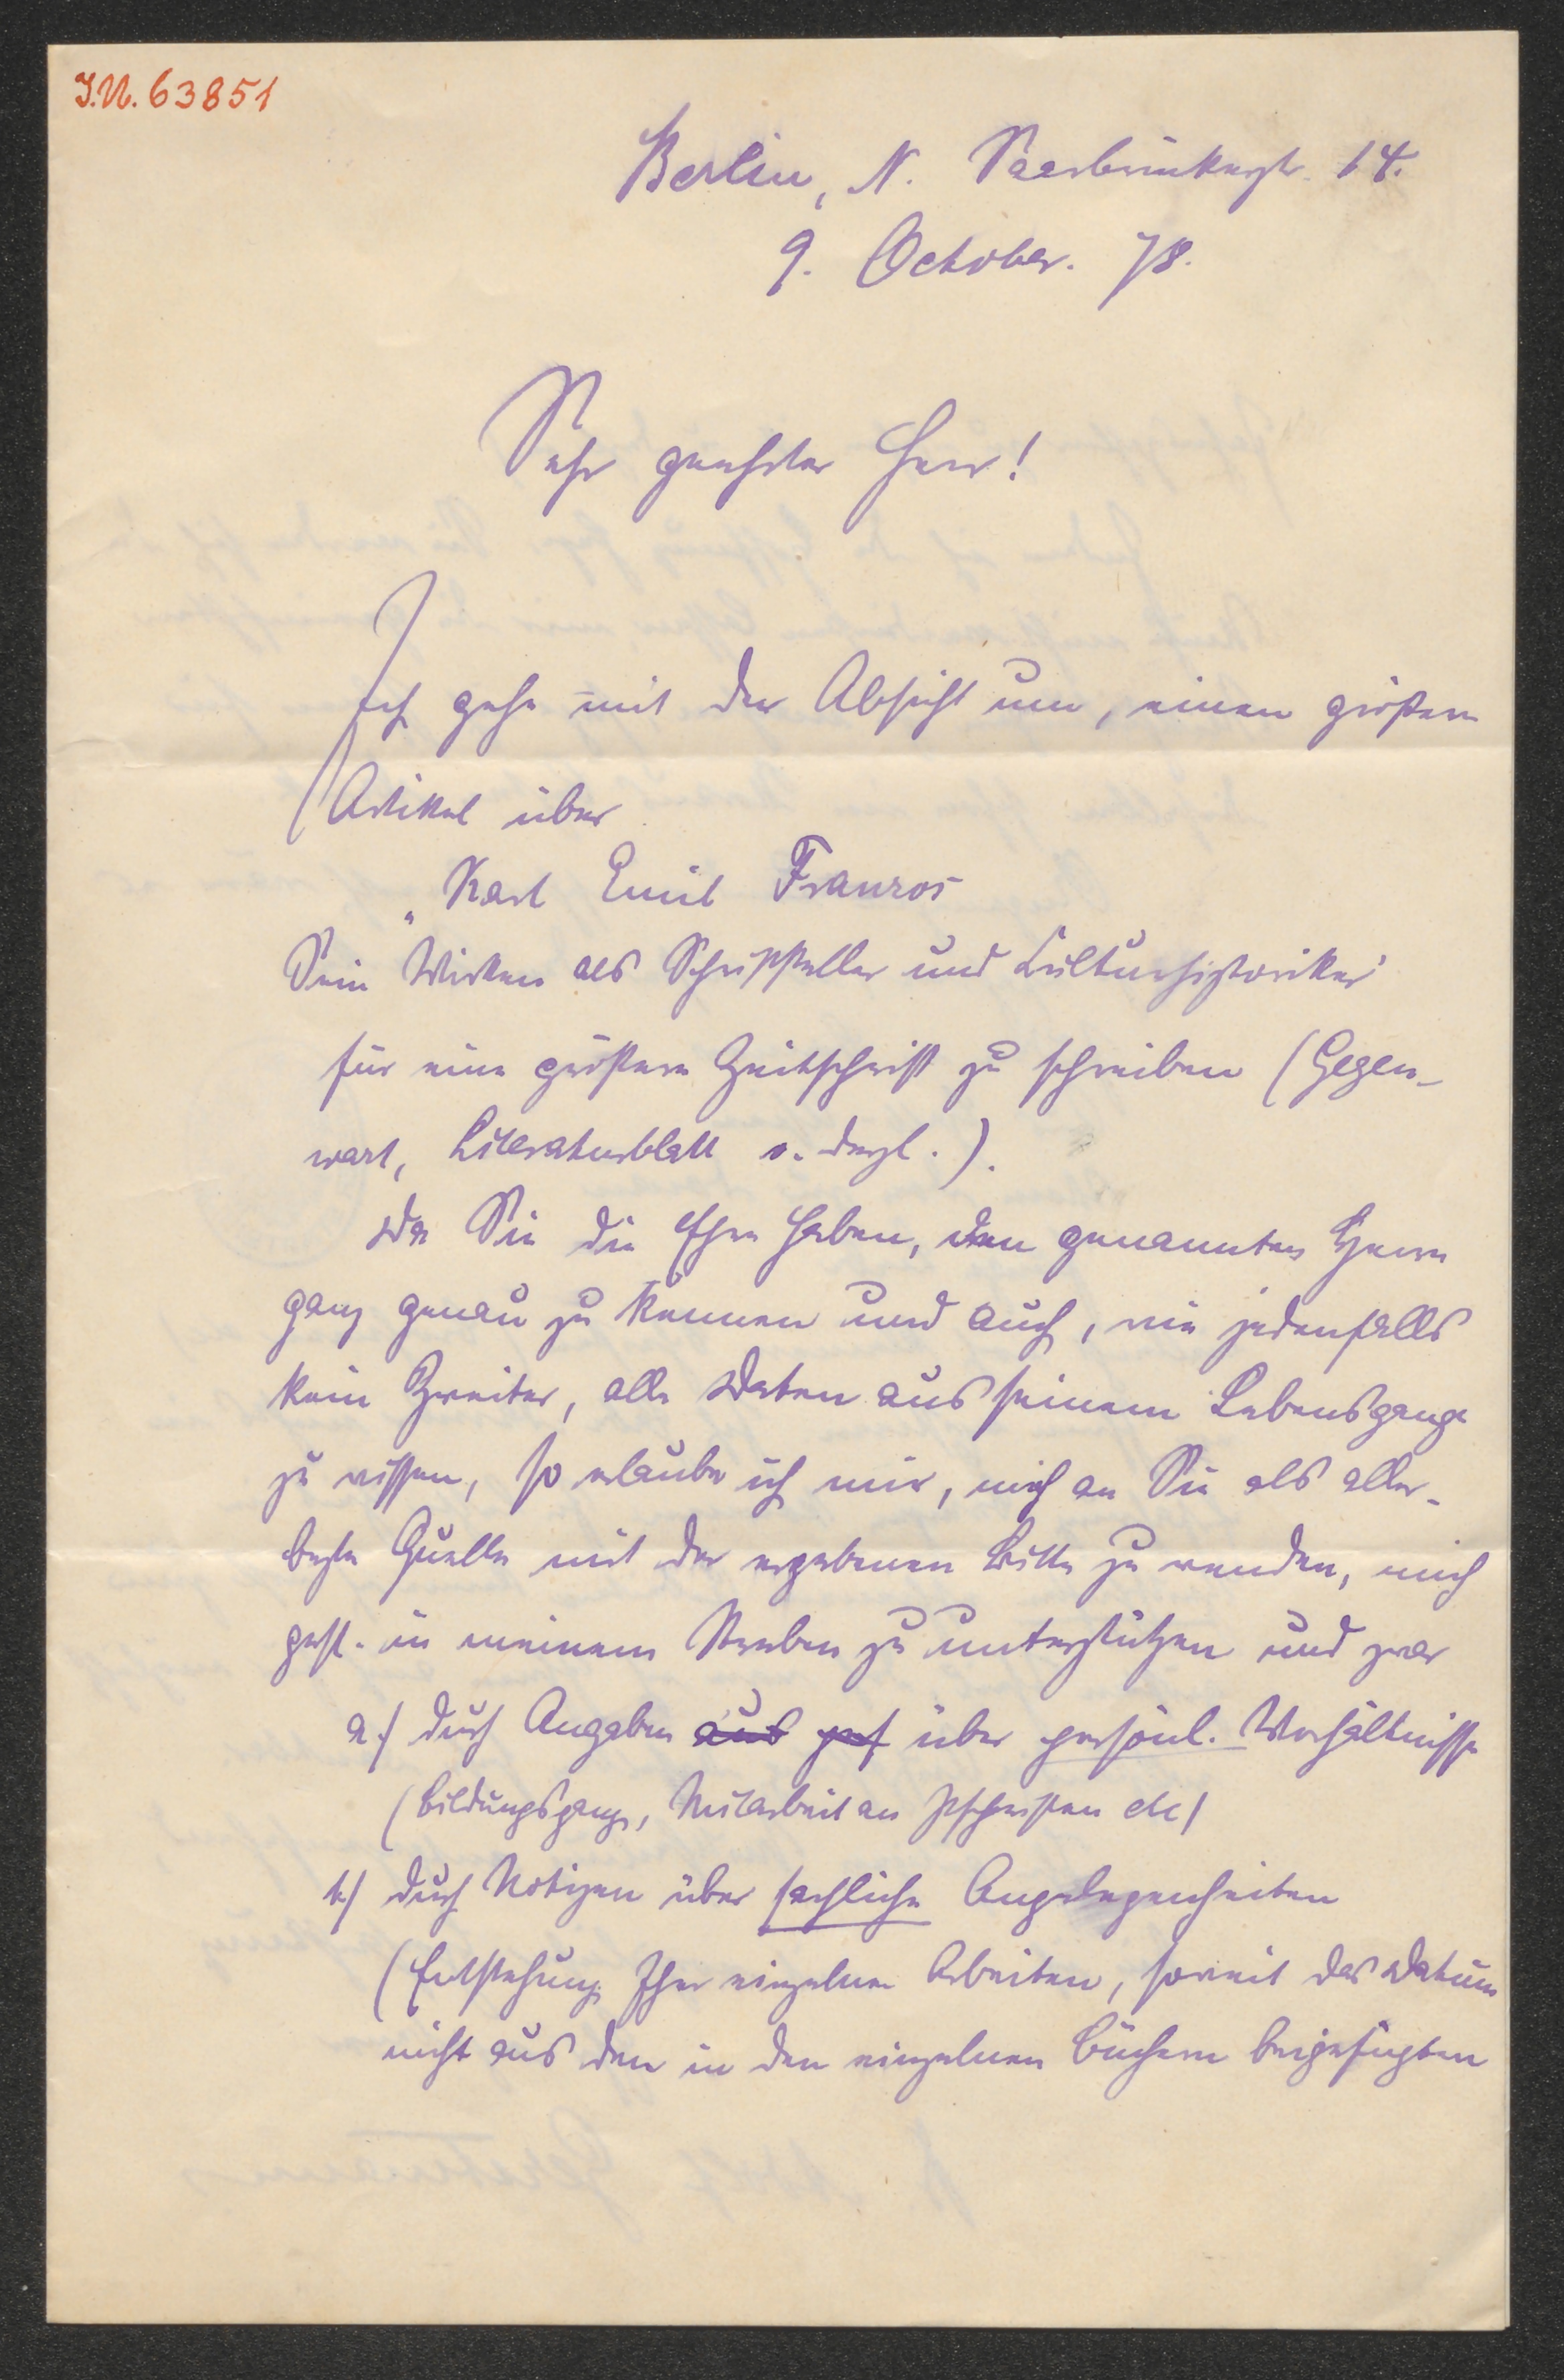 J.N. 63851
Berlin, N. Saarbrückerstr. 14.
9. October. 78.
Sehr geehrter Herr!
Ich gehe mit der Absicht um, einen größern
Artikel über
„Karl Emil Franzos
Sein Wirken als Schriftsteller und Kulturhistoriker"
für eine größere Zeitschrift zu schreiben (Gegen-
wart, Literaturblatt o. dergl.).
Da Sie die Ehre haben, den genannten Herrn
ganz genau zu kennen und auch, wie jedenfalls
kein Zweiter, alle Daten aus seinem Lebensgange
zu wissen, so erlaube ich mir, mich an Sie als aller-
beste Quelle mit der ergebenen Bitte zu wenden, mich
gefl. in meinem Streben zu unterstützen und zwar
a.) durch Angaben aus über persönl. Verhältnisse
(Bildungsgang, Mitarbeit an Ztschriften etc)
b.) durch Notizen über sachliche Angelegenheiten
(Entstehung Ihrer einzelnen Arbeiten, soweit das Datum
nicht aus den in den einzelnen Büchern beigefügten